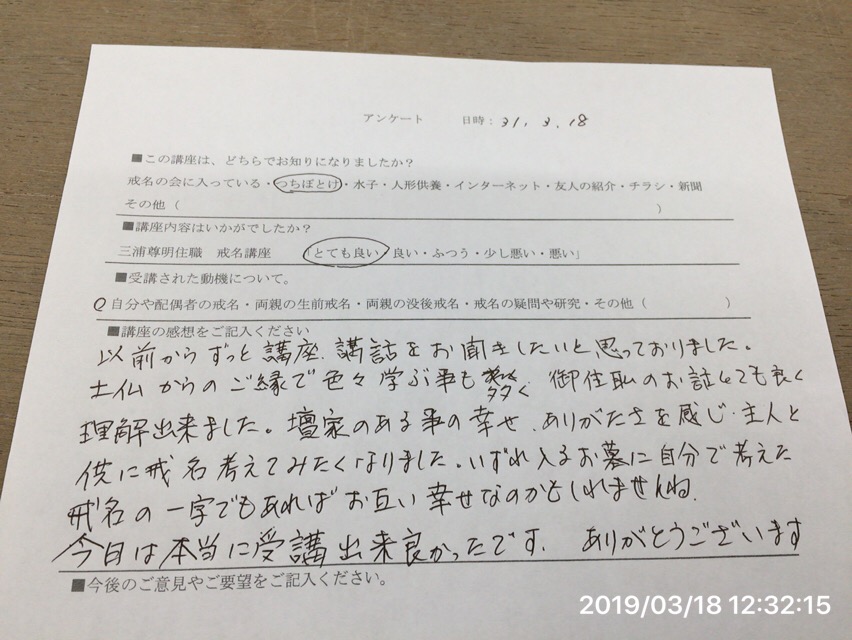 アンケート　日時：31. 3. 18
■この講座は、どちらでお知りになりましたか？
戒名の会に入っている・つちぼとけ・水子・人形供養・インターネット・友人の紹介・チラシ・新聞
その他（　　　）
■講座内容はいかがでしたか？
三浦尊明住職　戒名講座　「とても良い・良い・ふつう・少し悪い・悪い」
■受講された動機について。
自分や配偶者の戒名・両親の生前戒名・両親の没後戒名・戒名の疑問や研究・その他（　　　）
■講座の感想をご記入ください
以前からずっと講座、講話をお聞きしたいと思っておりました。
土仏からのご縁で色々学ぶ事も多く、御住職のお話とても良く
理解出来ました。壇家のある事の幸せ、ありがたさを感じ、主人と
供に戒名考えてみたくなりました。いずれ入るお墓に自分で考えた
戒名の一字でもあればお互い幸せなのかもしれませんね。
今日は本当に受講出来良かったです。ありがとうございます
■今後のご意見やご要望をご記入ください。
2019/03/18 12:32:15